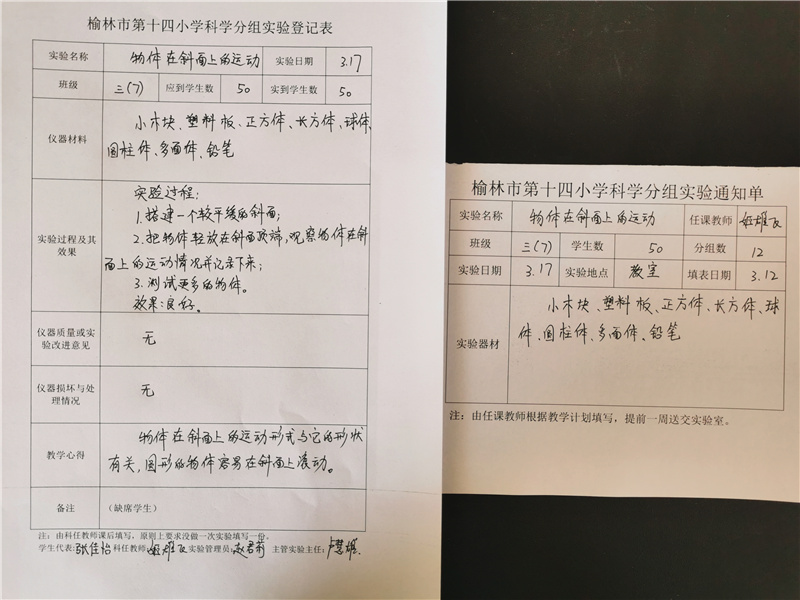 榆林市第十四小学科学分组实验登记表
实验名称 物体在斜面上的运动 实验日期 3.17
班级 三(7) 应到学生数 50 实到学生数 50
仪器材料 小木块、塑料板、正方体、长方体、球体、
圆柱体、多面体、铅笔
实验过程及其效果 实验过程：
1.搭建一个较平缓的斜面；
2.把物体轻放在斜面顶端，观察物体在斜
面上的运动情况并记录下来；
3.测试更多的物体。
效果：良好。
仪器质量或实验改进意见 无
仪器损坏与处理情况 无
教学心得 物体在斜面上的运动形式与它的形状
有关，圆形的物体容易在斜面上滚动。
备注 （缺席学生）
注：由科任教师课后填写，原则上要求没做一次实验填写一份。
学生代表：张佳怡 科任教师 实验管理员：赵君莉 主管实验主任：卢慧雄
榆林市第十四小学科学分组实验通知单
实验名称 物体在斜面上的运动 任课教师
班级 三(7) 学生数 50 分组数 12
实验日期 3.17 实验地点 教室 填表日期 3.12
实验器材 小木块、塑料板、正方体、长方体、球
体、圆柱体、多面体、铅笔
注：由任课教师根据教学计划填写，提前一周送交实验室。